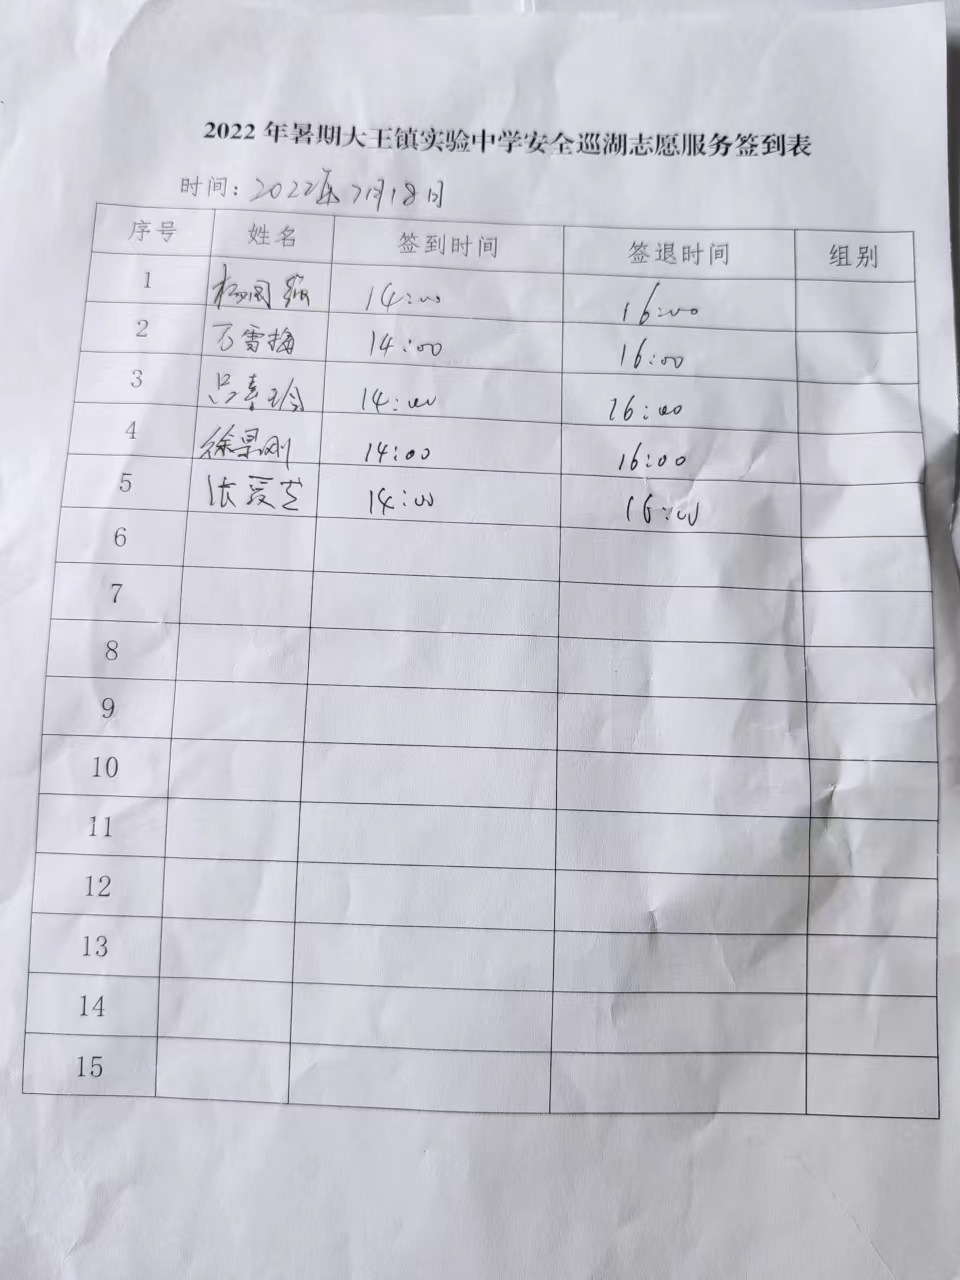 2022年暑期大王镇实验中学安全巡湖志愿服务签到表
时间：2022年7月18日
序号 姓名 签到时间 签退时间 组别
1 14:00 16:00
2 万雪梅 14:00 16:00
3 吕素玲 14:00 16:00
4 徐景刚 14:00 16:00
5 张爱芝 14:00 16:00
6
7
8
9
10
11
12
13
14
15